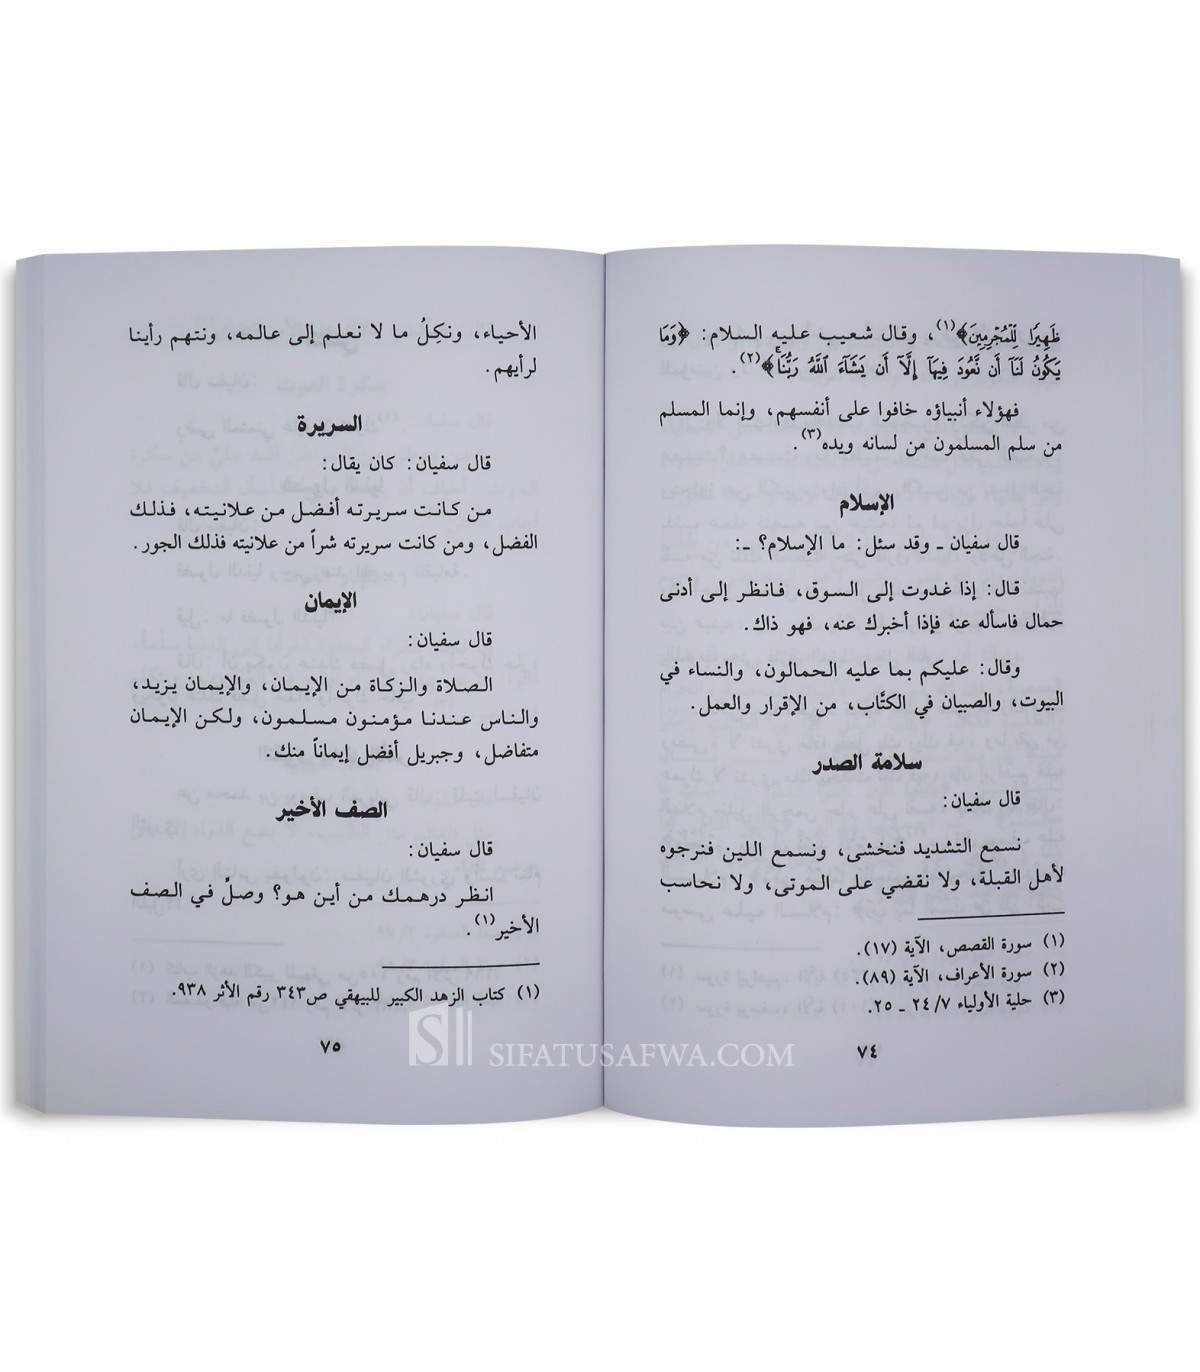 ظَهِيرًا لِّلْمُجْرِمِينَ﴾(١)، وقال شعيب عليه السلام: ﴿وَمَا
يَكُونُ لَنَآ أَن نَّعُودَ فِيهَآ إِلَّآ أَن يَشَآءَ ٱللَّهُ رَبُّنَا﴾(٢).
فهؤلاء أنبياؤه خافوا على أنفسهم، وإنما المسلم
من سلم المسلمون من لسانه ويده(٣).
الإسلام
قال سفيان ـ وقد سئل: ما الإسلام؟ ـ:
قال: إذا غدوت إلى السوق، فانظر إلى أدنى
حمال فاسأله عنه فإذا أخبرك عنه، فهو ذاك.
وقال: عليكم بما عليه الحمالون، والنساء في
البيوت، والصبيان في الكتَّاب، من الإقرار والعمل.
سلامة الصدر
قال سفيان:
نسمع التشديد فنخشى، ونسمع اللين فنرجوه
لأهل القبلة، ولا نقضي على الموتى، ولا نحاسب
(١) سورة القصص، الآية (١٧).
(٢) سورة الأعراف، الآية (٨٩).
(٣) حلية الأولياء ٧/ ٢٤ ـ ٢٥.
٧٤
الأحياء، ونكِلُ ما لا نعلم إلى عالمه، ونتهم رأينا
لرأيهم.
السريرة
قال سفيان: كان يقال:
من كانت سريرته أفضل من علانيته، فذلك
الفضل، ومن كانت سريرته شراً من علانيته فذلك الجور.
الإيمان
قال سفيان:
الصلاة والزكاة من الإيمان، والإيمان يزيد،
والناس عندنا مؤمنون مسلمون، ولكن الإيمان
متفاضل، وجبريل أفضل إيماناً منك.
الصف الأخير
قال سفيان:
انظر درهمك من أين هو؟ وصلِّ في الصف
الأخير(١).
(١) كتاب الزهد الكبير للبيهقي ص٣٤٣ رقم الأثر ٩٣٨.
٧٥
SIFATUSAFWA.COM